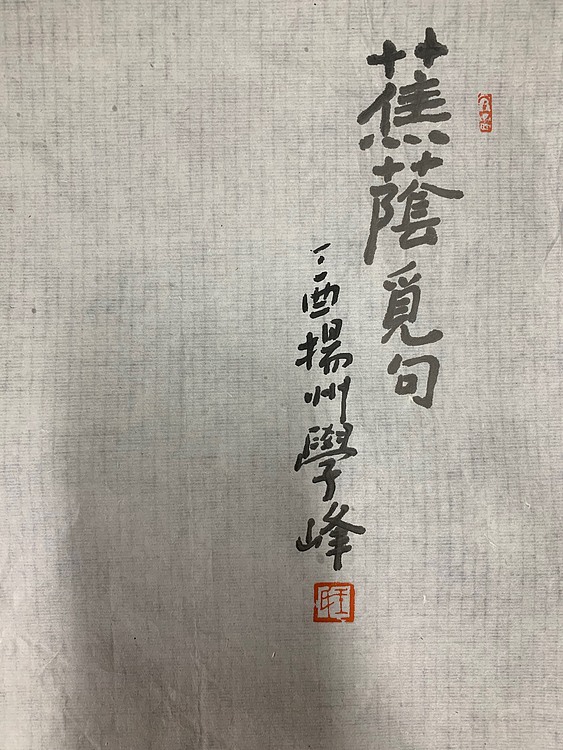 蕉蔭覓句
丁酉揚州學峰